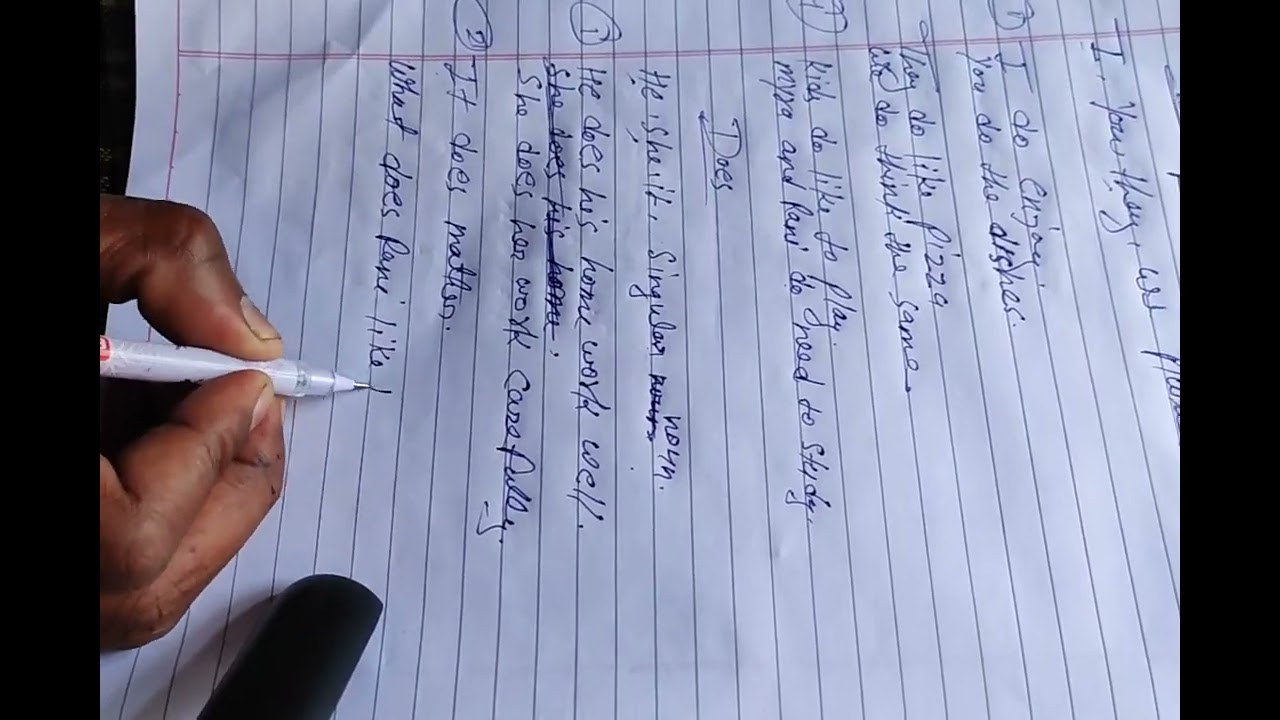 I, you, they, we
① I do enjoy
You do the dishes.
They do like pizza
We do think the same
Kids do like to play.
and Rani do need to study.
Does
He, she, it, singular noun.
① He does his home work well.
She does his home
She does her work carefully.
② It does matter.
What does Rani like